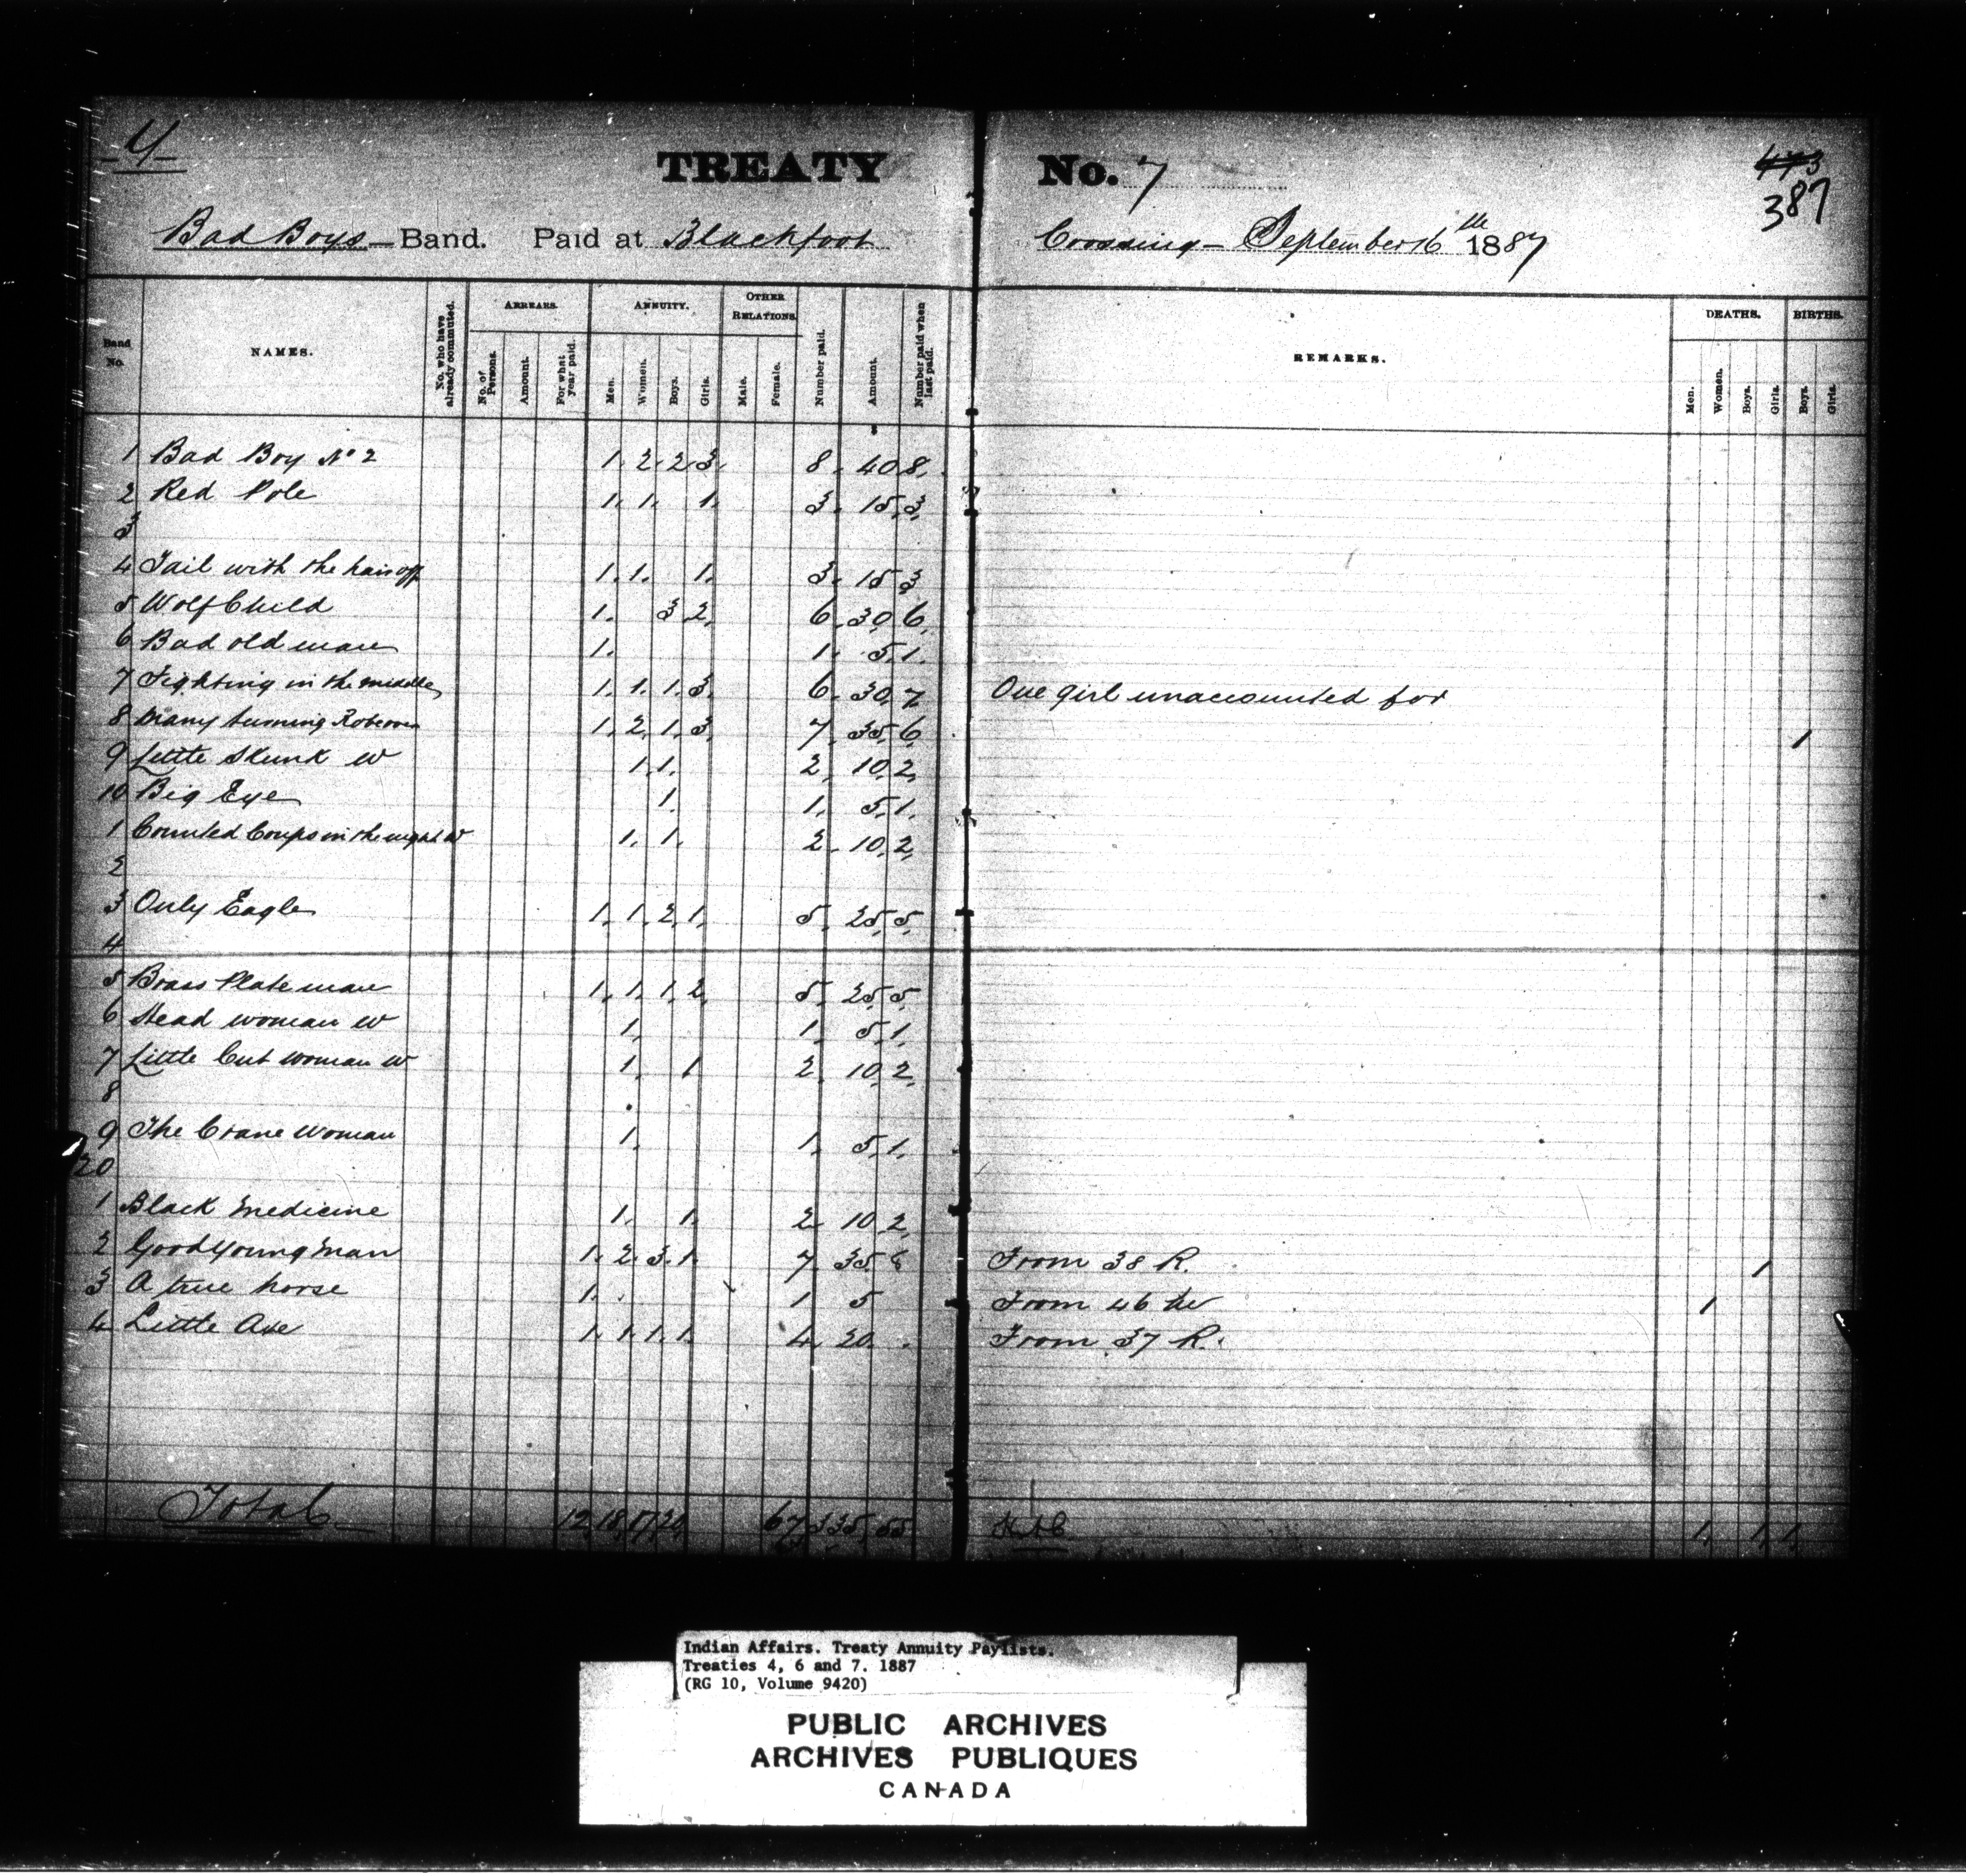 4
TREATY No. 7
443
387
Bad Boys Band. Paid at Blackfoot Crossing - September 16th 1887
Band No. NAMES. No. who have already commuted. ARREARS. No. of Persons. Amount. For what year paid. ANNUITY. Men. Women. Boys. Girls. OTHER RELATIONS. Male. Female. Number paid. Amount. Number paid when last paid. REMARKS. DEATHS. Men. Women. Boys. Girls. BIRTHS. Boys. Girls.
1 Bad Boy No 2 1. 2. 2. 3. 8. 40. 8.
2 Red Pole 1. 1. 1. 3. 15. 3.
3
4 Tail with the hair off 1. 1. 1. 3. 15 3
5 Wolf Child 1. 3 2. 6. 30. 6.
6 Bad old man 1. 1. 5. 1.
7 Fighting in the middle 1. 1. 1. 3. 6. 30. 7. One girl unaccounted for
8 Many turning 1. 2. 1. 3. 7. 35. 6. 1
9 Little Skunk W 1. 1. 2. 10. 2.
10 Big Eye 1. 1. 5. 1.
1 Counted Coups in the night W 1. 1. 2. 10. 2.
2
3 Only Eagle 1. 1. 2. 1. 5. 25. 5.
4
5 Brass Plate man 1. 1. 1. 2. 5. 25. 5.
6 Head woman W 1. 1. 5. 1.
7 Little Cut woman W 1. 1 2. 10. 2.
8
9 The Crane Woman 1. 1. 5. 1.
20
1 Black Medicine 1. 1. 2 10. 2.
2 Good Young Man 1. 2. 3. 1. 7. 35. 8 From 38 R. 1
3 A true horse 1. 1 5 From 46 1
4 Little Axe 1. 1. 1. 1. 4. 20. From 37 R.
Total 12 18 17 20 67 335 65 1. 1. 1.
Indian Affairs. Treaty Annuity Paylists.
Treaties 4, 6 and 7. 1887
(RG 10, Volume 9420)
PUBLIC ARCHIVES
ARCHIVES PUBLIQUES
CANADA